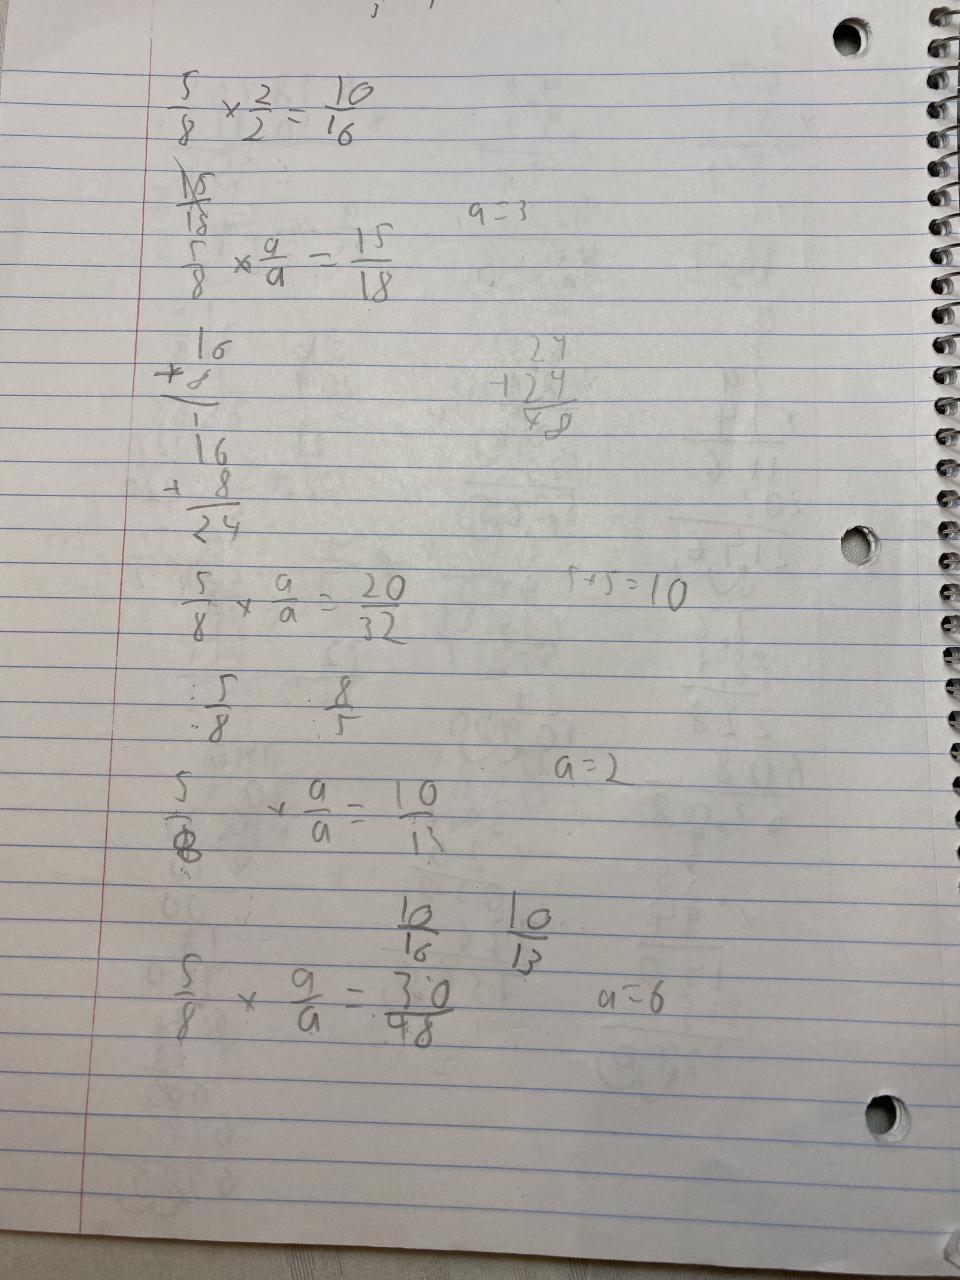 5/8 × 2/2 = 10/16
15/18
a = 3
5/8 × a/a = 15/18
16
+ 8
1
16
+ 8
24
24
+ 24
48
5/8 × a/a = 20/32
5+5=10
5/8 8/5
a = 2
5/8 × a/a = 10/13
10/16 10/13
5/8 × a/a = 30/48
a = 6